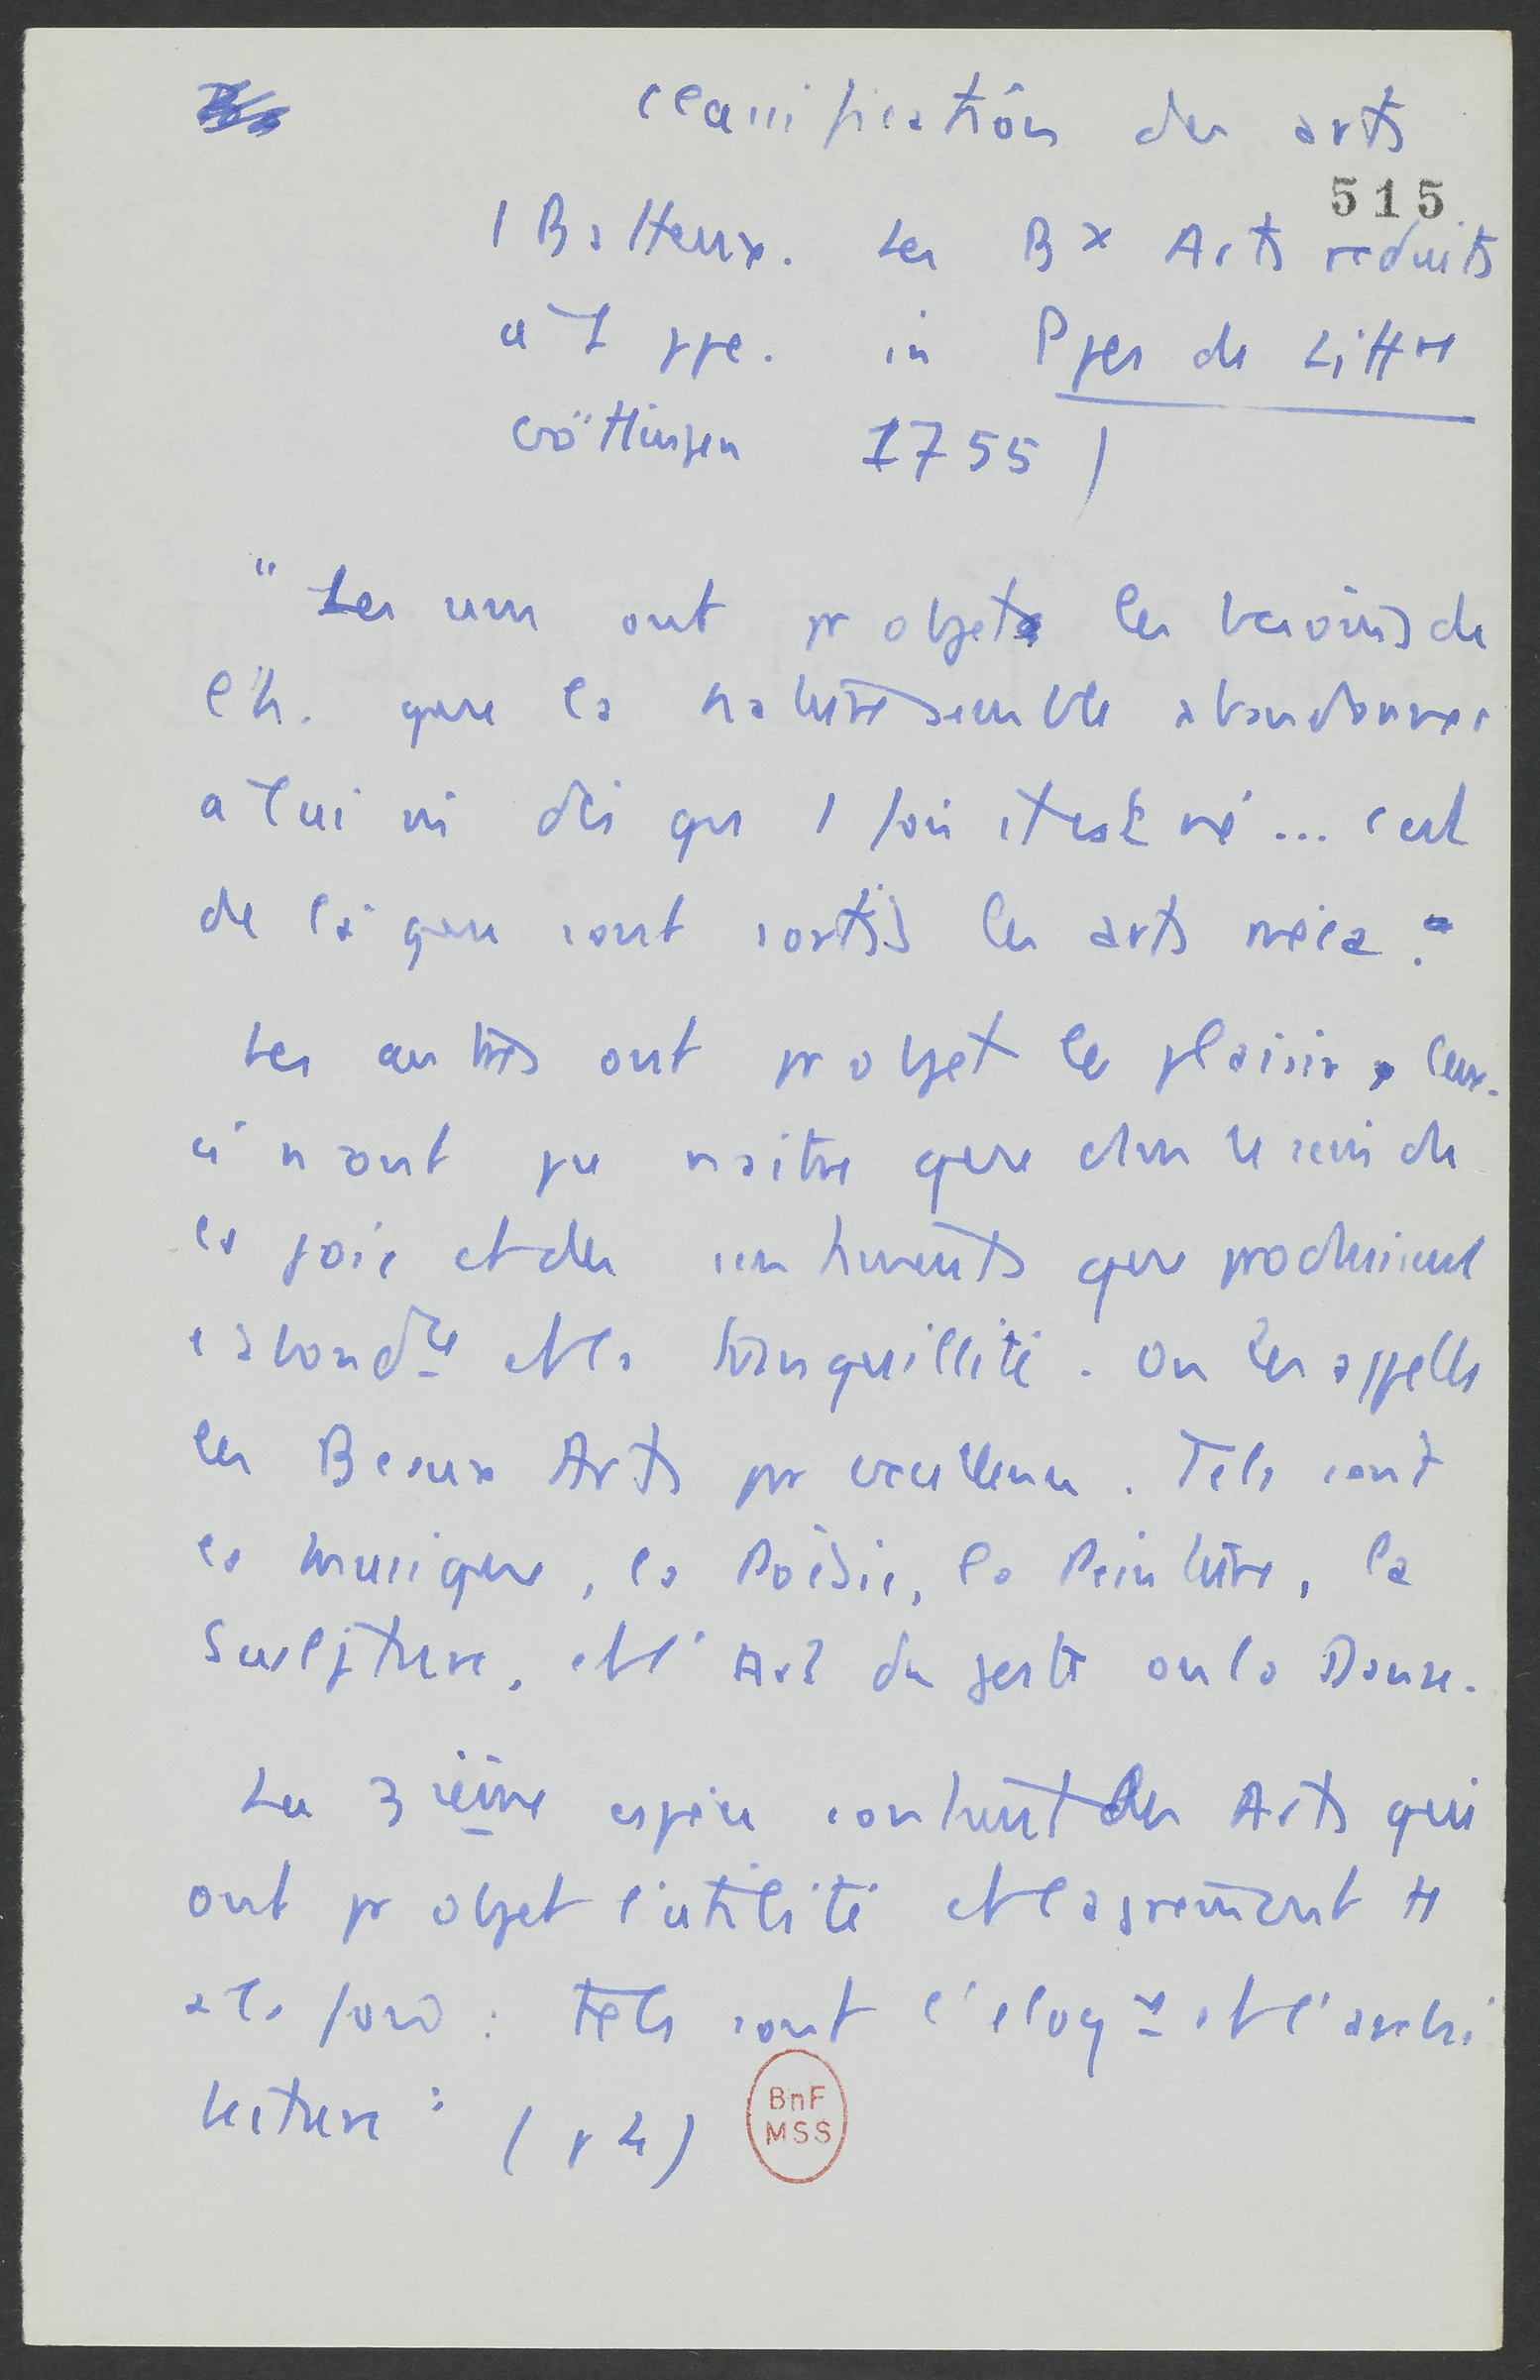 classification des arts
515
(Batteux. Les Bx Arts reduits
a 1 ppe. in Ppes de Littre
Göttingen 1755)
"Les uns ont pr objet les besoins de
l'h. que la nature semble abandonner
a lui m dès qu 1 fois il est né... c'est
de là que sont sortis les arts méca."
Les autres ont pr objet le plaisir. Ceux-
ci n'ont pu naitre que dans le sein de
la joie et des sentiments que produisent
l'abondce et la tranquillité. On les appelle
les Beaux Arts par excellence. Tels sont
la musique, la Poésie, la Peinture, la
Sculpture, et l'Art du geste ou la Danse.
La 3ieme espèce contient des Arts qui
ont pr objet l'utilité et l'agrément tt
a la fois : tels sont l'éloqce et l'archi
tecture" (p 4)
BnF
MSS